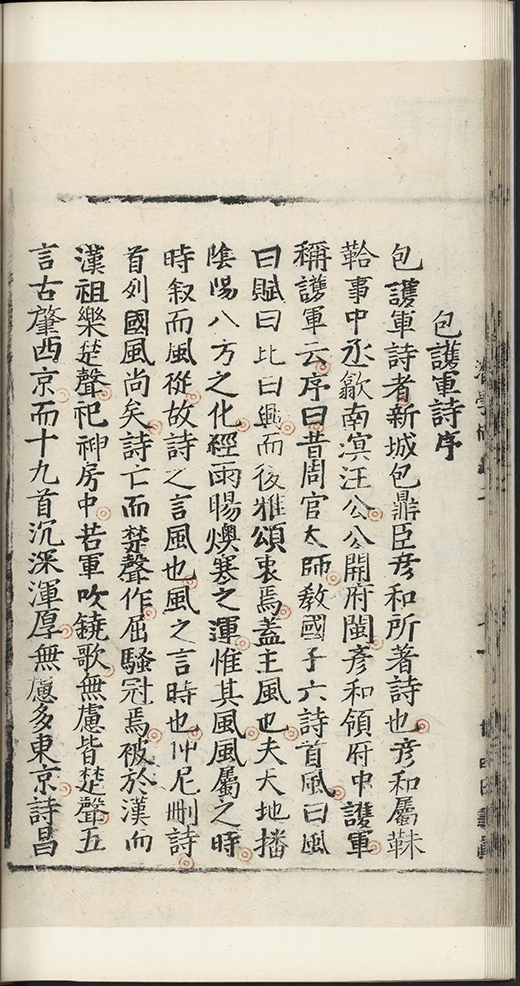 包護軍詩序
包護軍詩者新城包鼎臣彥和所著詩也彥和屬韎
韐事中丞歙南溟汪公公開府閩彥和領府中護軍
稱護軍云序曰昔周官太師教國子六詩首風曰風
曰賦曰比曰興而後雅頌衷焉蓋主風也夫天地播
陰陽八方之化經雨暘燠寒之運惟其風風屬之時
時叙而風從故詩之言風也風之言時也仲尼刪詩
首列國風尚矣詩亡而楚聲作屈騷冠焉被於漢而
漢祖樂楚聲祀神房中若軍吹鐃歌無慮皆楚聲五
言古肇西京而十九首沉深渾厚無慮多東京詩昌